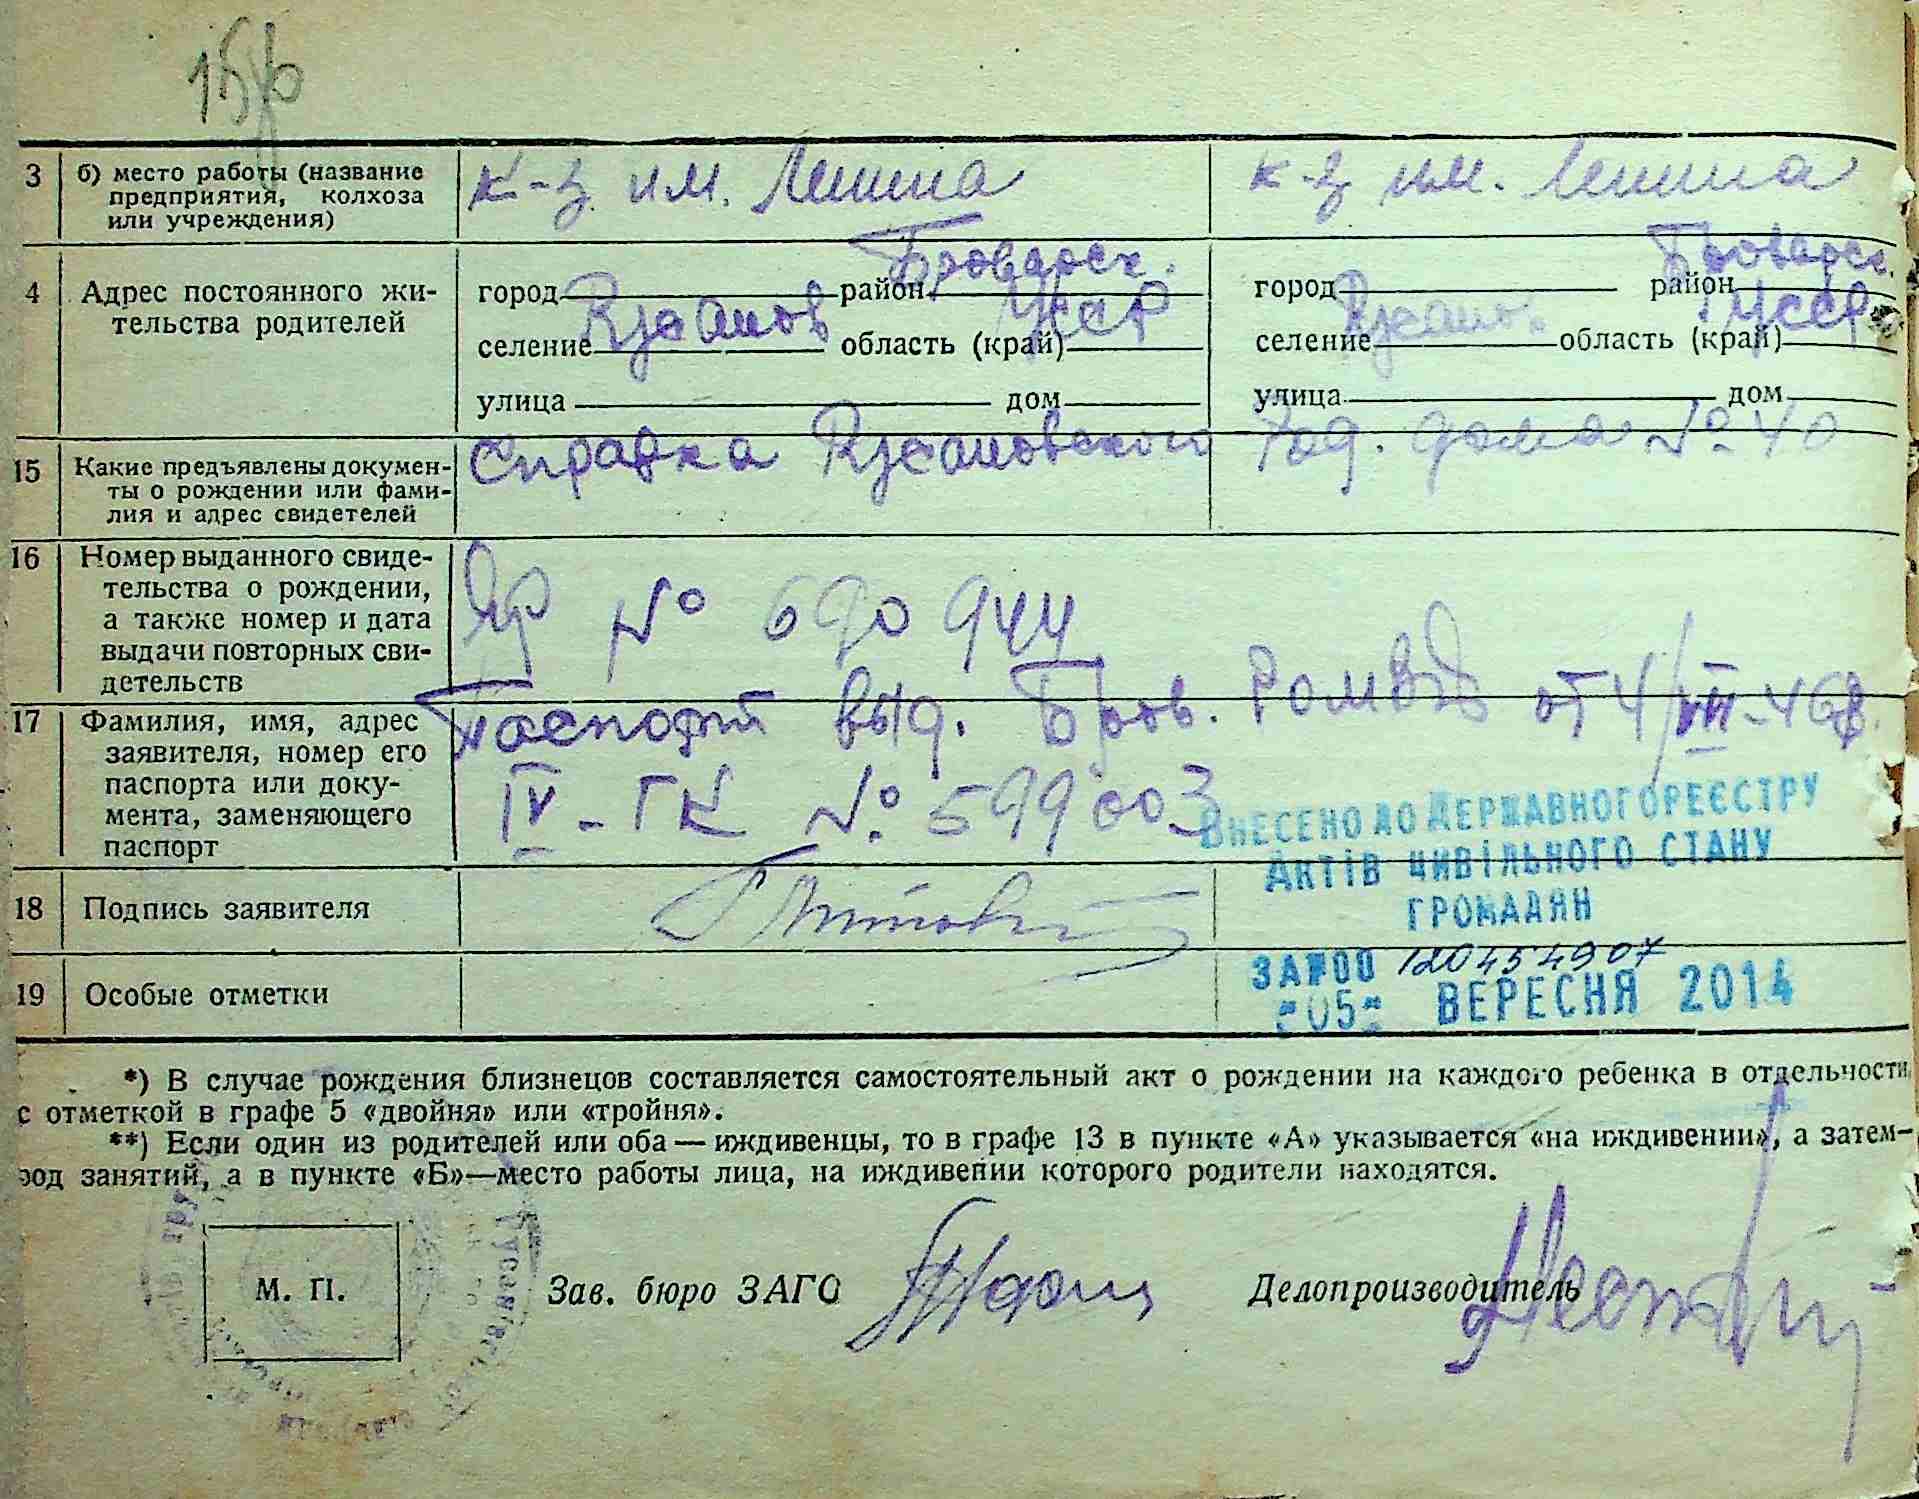 3 б) место работы (название предприятия, колхоза или учреждения) к-з. им. Ленина к-з им. Ленина
4 Адрес постоянного жительства родителей
город район Броварск. город район Броварск.
селение Русанов область (край) УССР селение Русанов область (край) УССР
улица дом улица дом
15 Какие предъявлены документы о рождении или фамилия и адрес свидетелей Справка Русановского Род. дома № 40
16 Номер выданного свидетельства о рождении, а также номер и дата выдачи повторных свидетельств № 690944
17 Фамилия, имя, адрес заявителя, номер его паспорта или документа, заменяющего паспорт
Паспорт выд. Бров. от 4/VII-46г.
IV-ГК № 599003
ВНЕСЕНО ДО ДЕРЖАВНОГО РЕЄСТРУ
АКТІВ ЦИВІЛЬНОГО СТАНУ
ГРОМАДЯН
18 Подпись заявителя
ЗА №00 120454907
19 Особые отметки
05 ВЕРЕСНЯ 2014
*) В случае рождения близнецов составляется самостоятельный акт о рождении на каждого ребенка в отдельности
с отметкой в графе 5 «двойня» или «тройня».
**) Если один из родителей или оба — иждивенцы, то в графе 13 в пункте «А» указывается «на иждивении», а затем—
род занятий, а в пункте «Б»—место работы лица, на иждивении которого родители находятся.
М. П. Зав. бюро ЗАГС Делопроизводитель